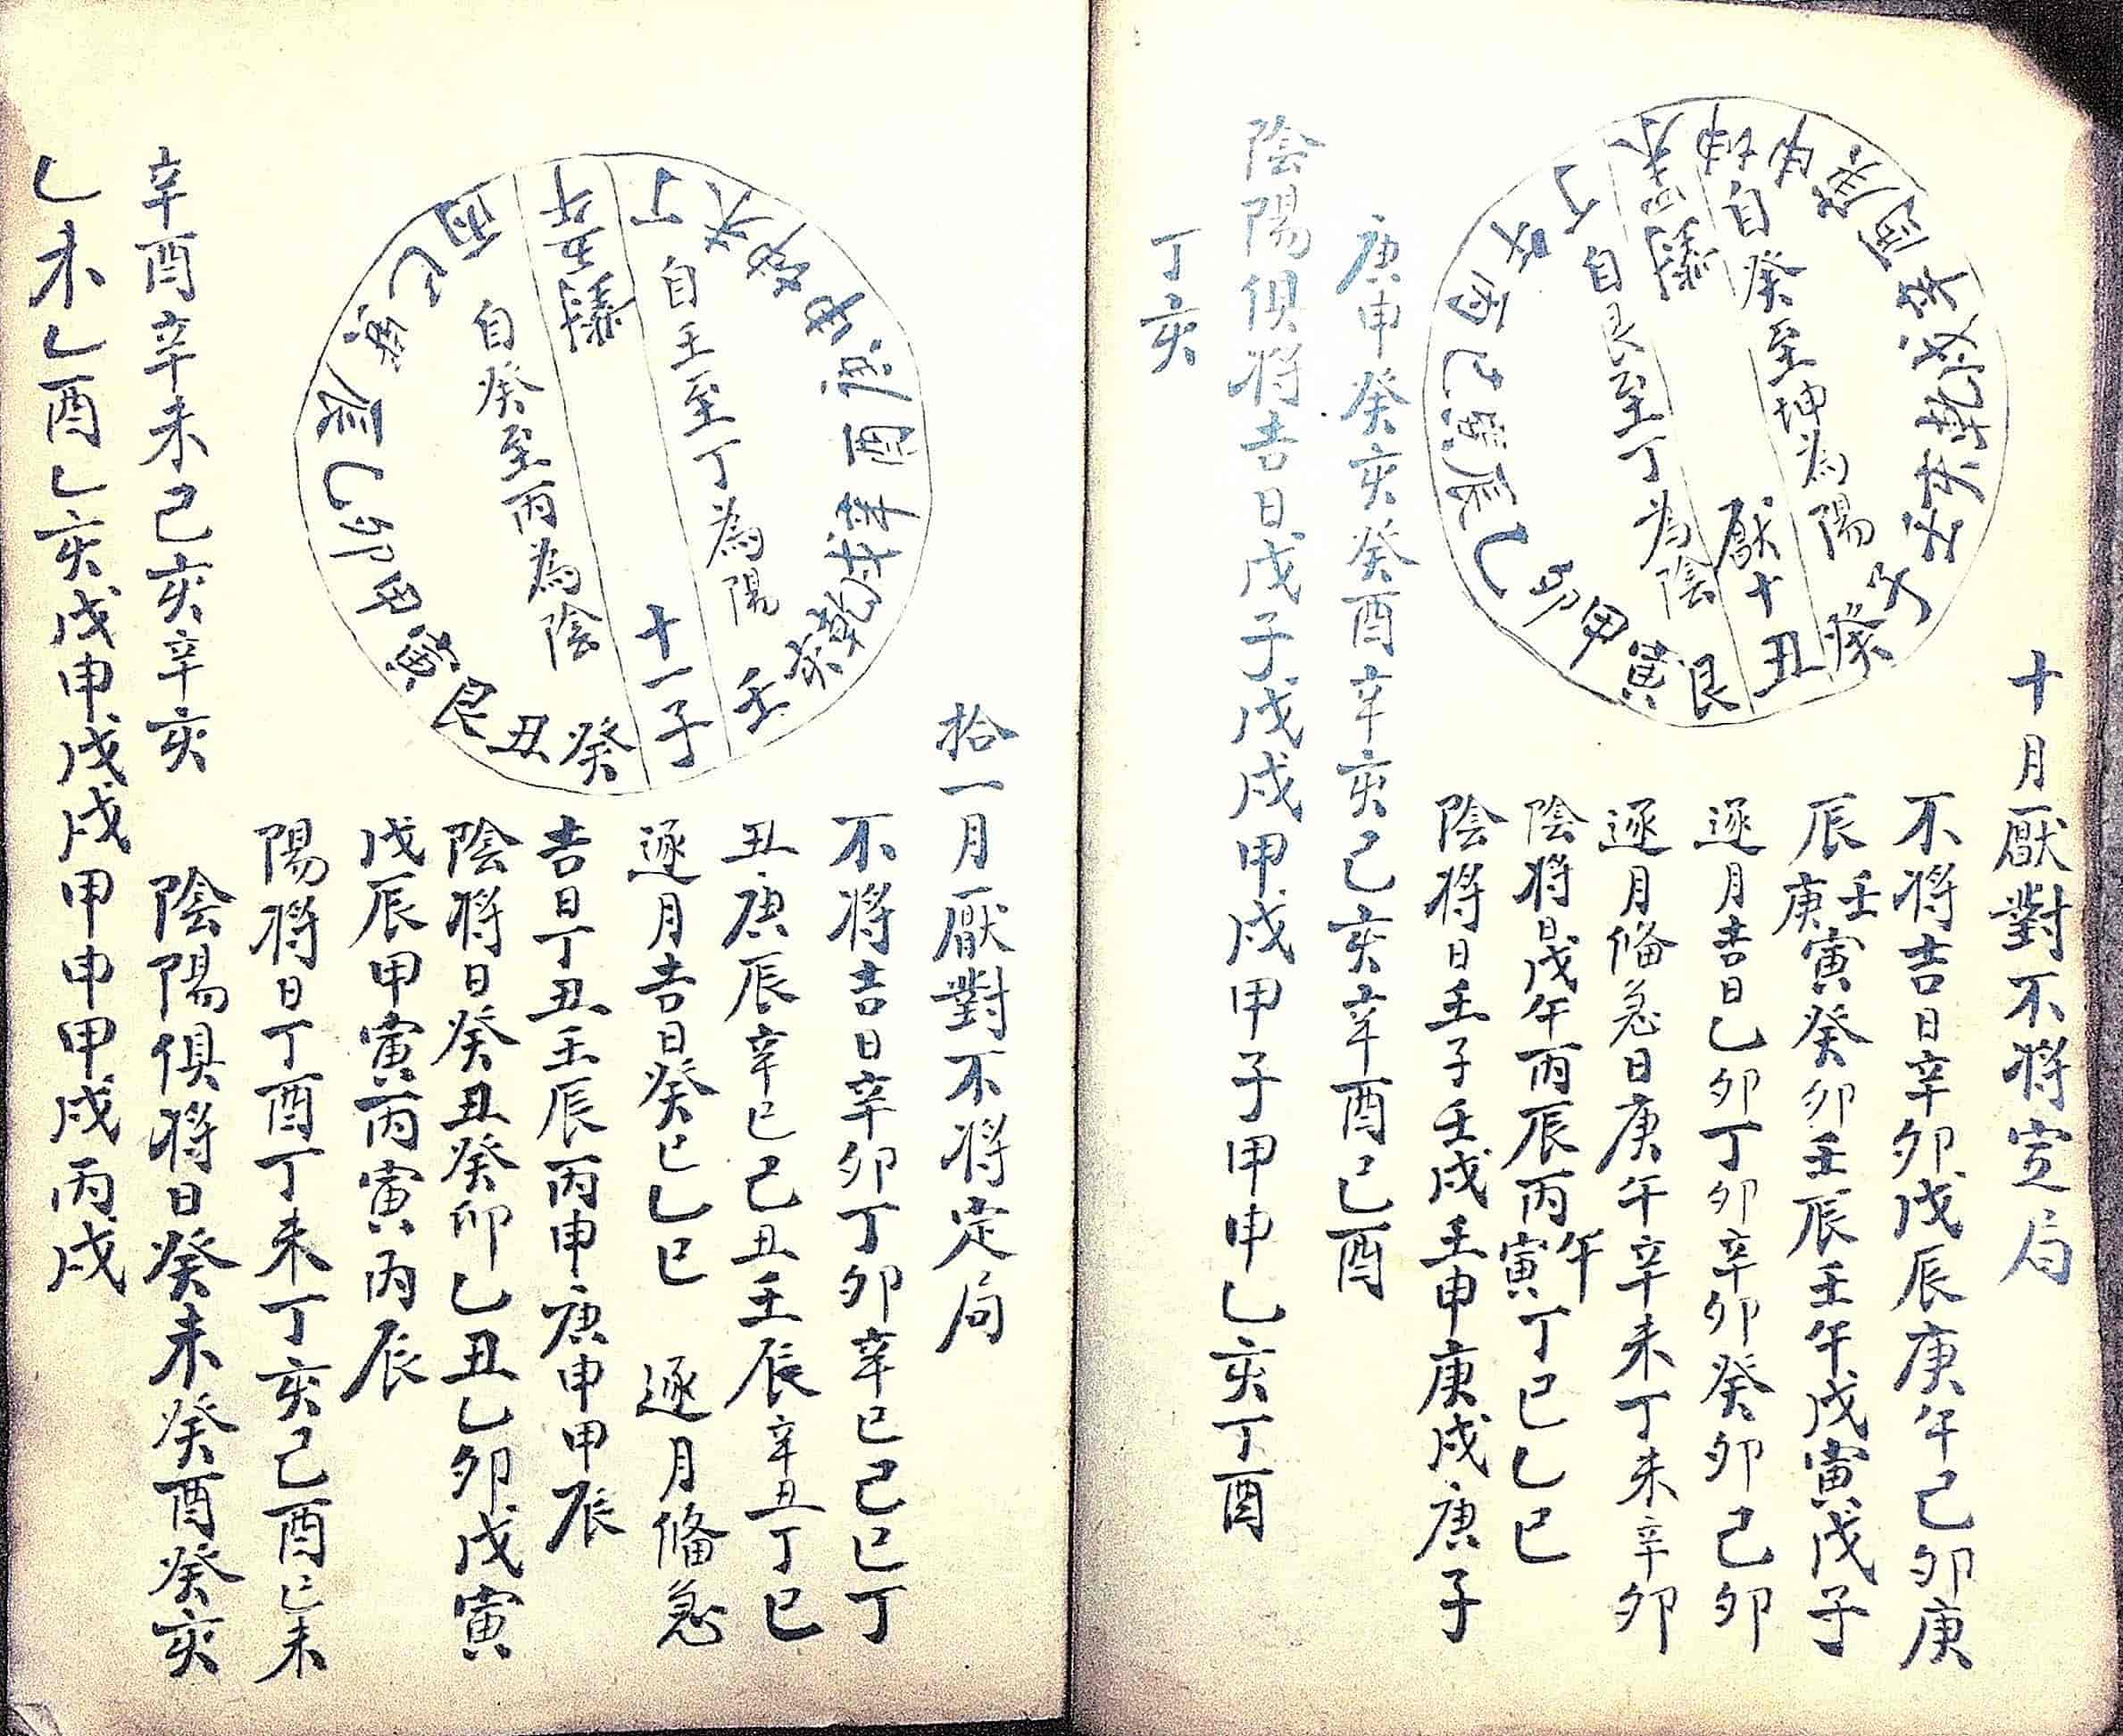 十月厭對不将定局
不将吉日辛卯戊辰庚午己卯庚
辰壬庚寅癸卯壬辰壬午戊寅戊子
逐月吉日乙卯丁卯辛卯癸卯己卯
逐月俻急日庚午辛未丁未辛卯
陰将日戊午丙辰丙午寅丁巳乙巳
陰将日壬子壬戌壬申庚戌庚子
庚申癸亥癸酉辛亥己亥辛酉己酉
陰陽俱将吉日戊子戊戌戊甲戌甲子甲申乙亥丁酉
丁亥
自癸至坤為陽
厭十
自艮至丁為陰
丑艮寅甲卯乙辰巳丙午丁未坤申庚酉辛戌乾亥壬子癸
拾一月厭對不将定局
不将吉日辛卯丁卯辛巳己巳丁
丑庚辰辛巳己丑壬辰辛丑丁巳
逐月吉日癸巳乙巳 逐月俻急
吉日丁丑壬辰丙申庚申甲辰
陰将日癸丑癸卯乙丑乙卯戊寅
戊辰甲寅丙寅丙辰
陽将日丁酉丁未丁亥己酉己未
辛酉辛未己亥辛亥 陰陽俱将日癸未癸酉癸亥
乙未乙酉乙亥戊申戊戌甲申甲戌丙戌
自壬至丁為陽
十一子
自癸至丙為陰
癸丑艮寅甲卯乙辰巳丙午丁未坤申庚酉辛戌乾亥壬